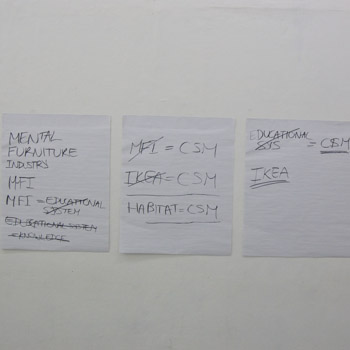 MENTAL
FURNITURE
INDUSTRY
MFI
MFI = EDUCATIONAL
SYSTEM
EDUCATIONAL SYSTEM
= KNOWLEDGE
MFI = CSM
IKEA = CSM
HABITAT = CSM
EDUCATIONAL
SYS = CSM
IKEA